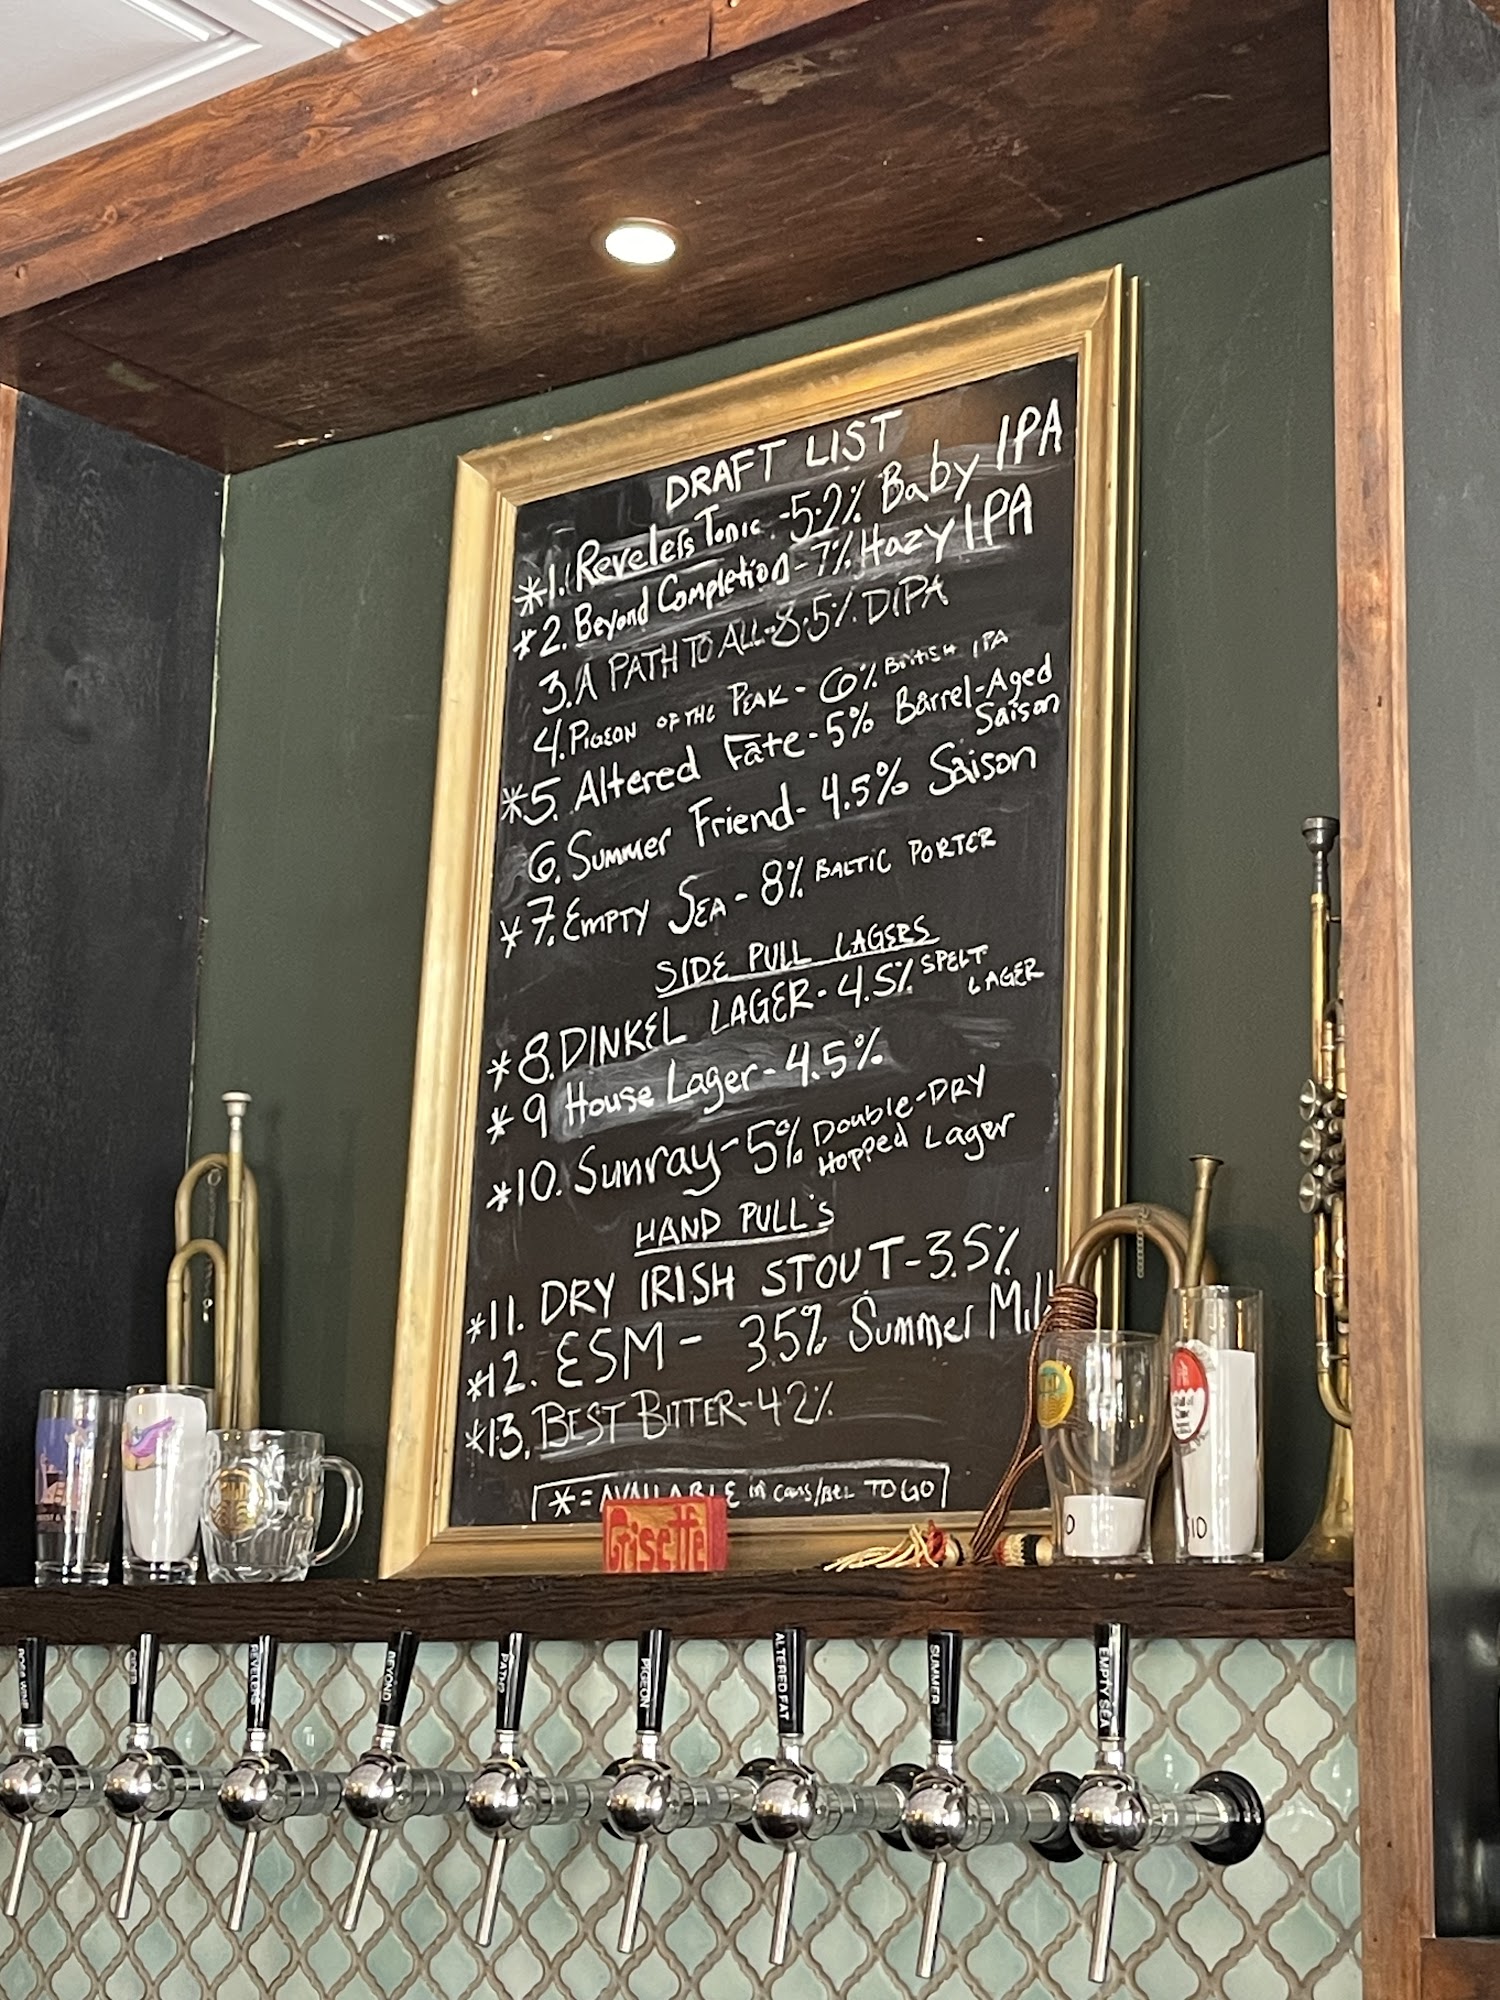 DRAFT LIST
*1. Revelers Tonic - 5.2% Baby IPA
*2. Beyond Completion - 7% Hazy IPA
3. A PATH TO ALL - 8.5% DIPA
4. PIGEON OF THE PEAK - 6% British IPA
*5. Altered Fate - 5% Barrel-Aged
Saison
6. Summer Friend - 4.5% Saison
*7. EMPTY SEA - 8% BALTIC PORTER
SIDE PULL LAGERS
*8. DINKEL LAGER - 4.5% SPELT
LAGER
*9 House Lager - 4.5%
*10. Sunray - 5% Double-DRY
Hopped Lager
HAND PULL'S
*11. DRY IRISH STOUT - 3.5%
*12. ESM - 3.5% Summer Mil
*13. BEST BITTER - 4.2%
* = AVAILABLE in cans/ TO GO
Grisette
REVELERS
BEYOND
PATH
PIGEON
ALTERED FAT
SUMMER
EMPTY SEA